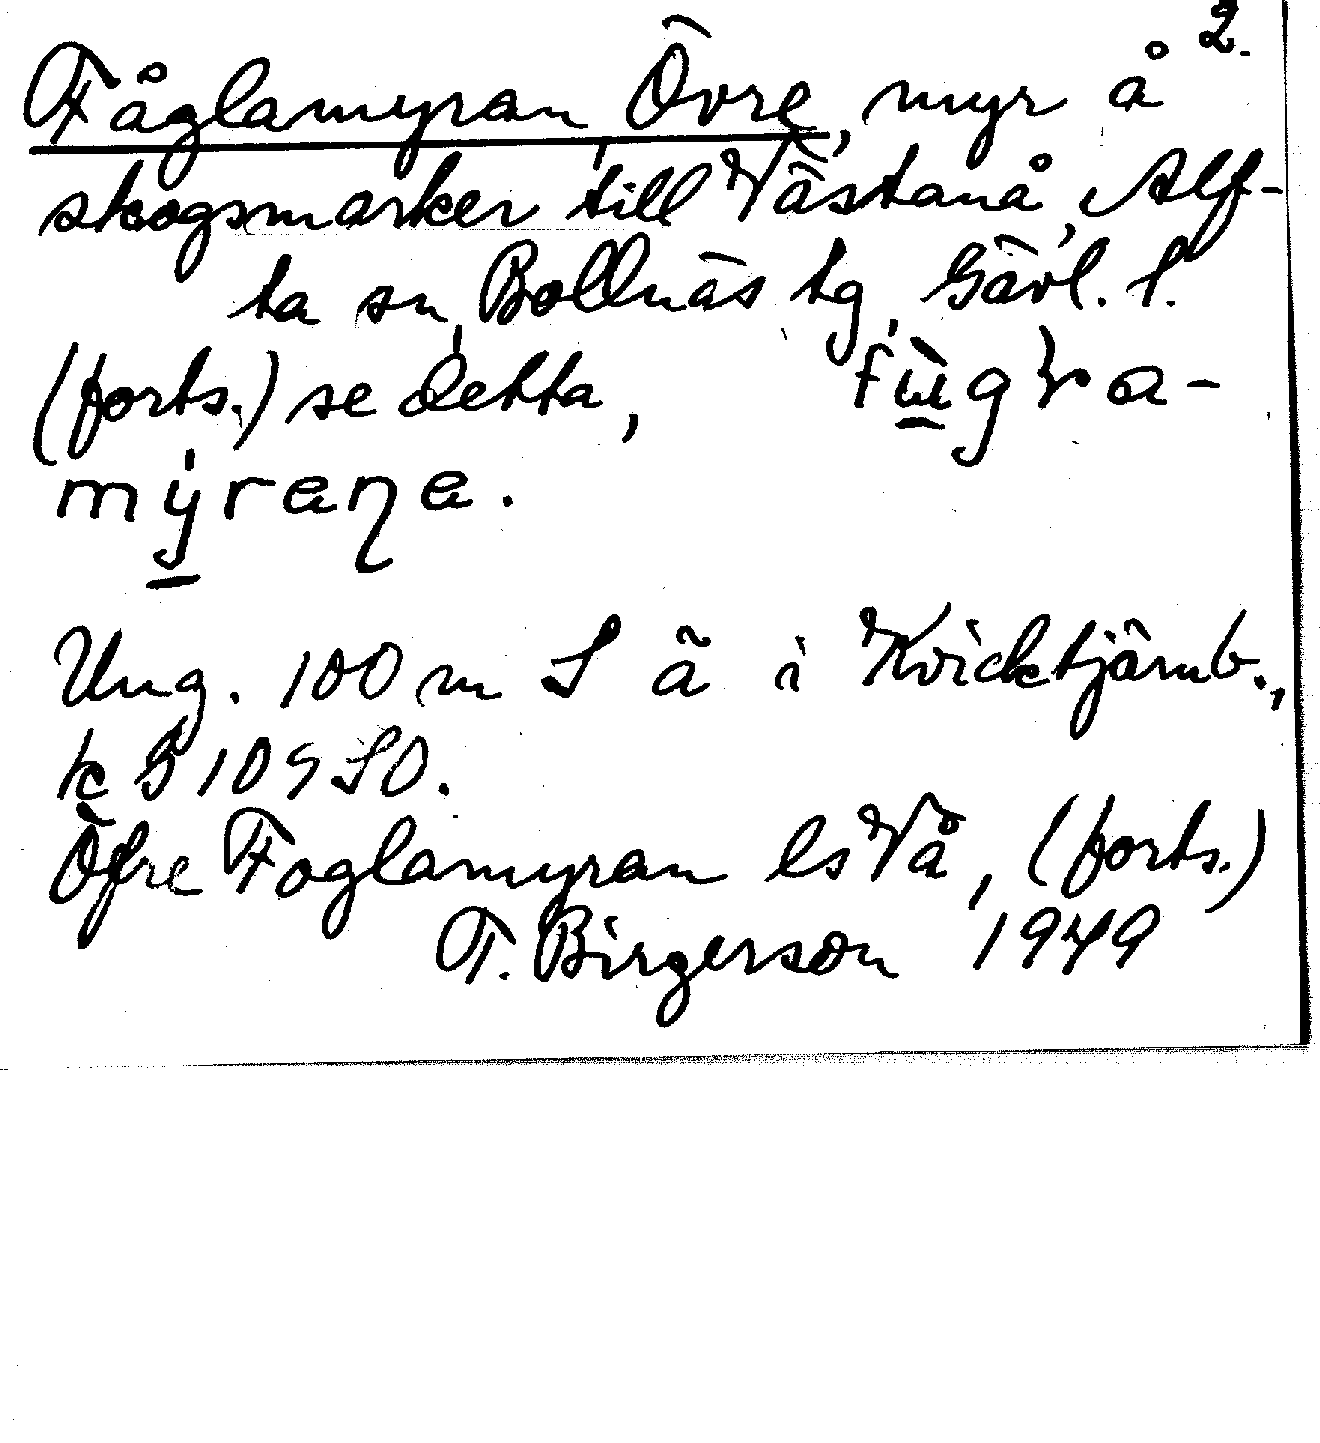 2.
Fåglamyran, Övre, myr å
skogsmarker till Västanå, Alf-
ta sn, Bollnäs tg, Gävl. l.
(forts.) se detta,
mýrana.
Ung. 100 m S ä i Kvicktjärnb.,
Öfre Foglamyran ls Vå, (forts.)
T. Birgerson 1949